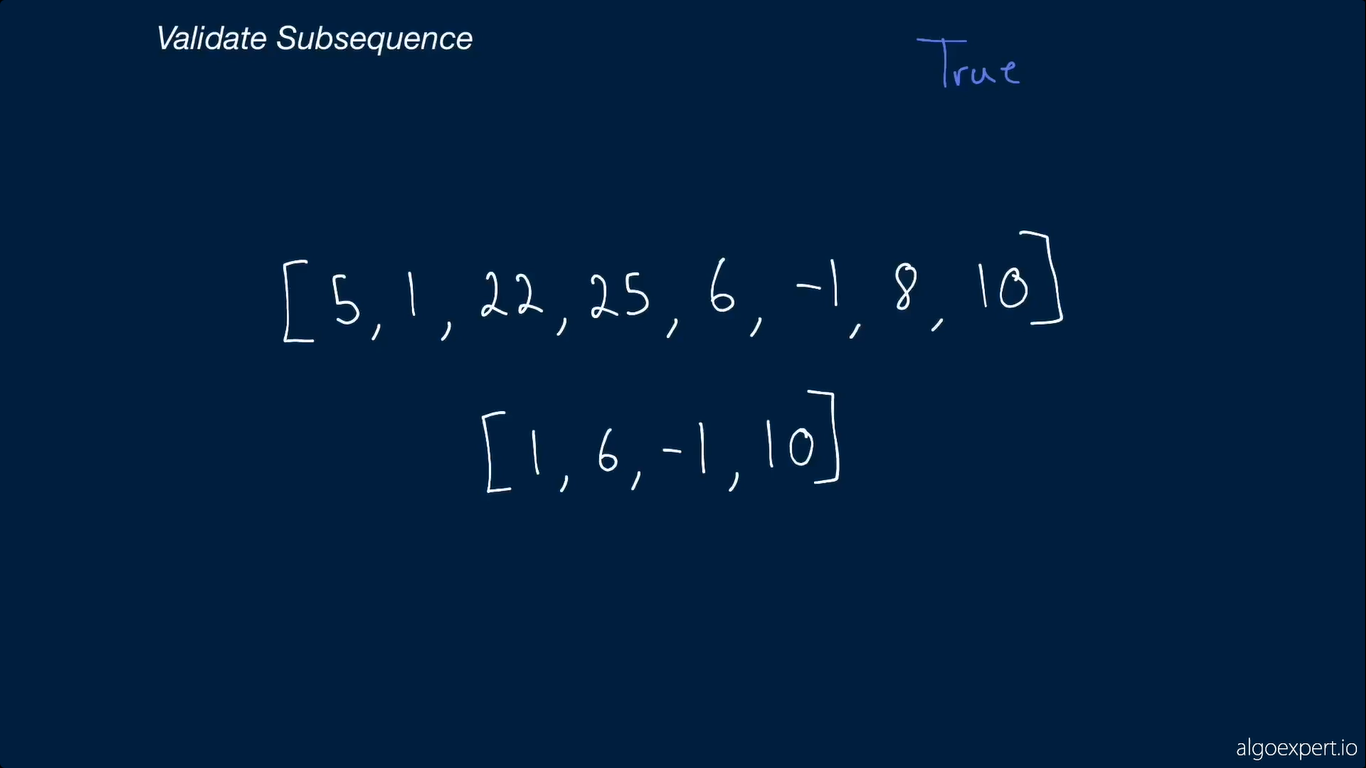 Validate Subsequence
True
[5, 1, 22, 25, 6, -1, 8, 10]
[1, 6, -1, 10]
algoexpert.io